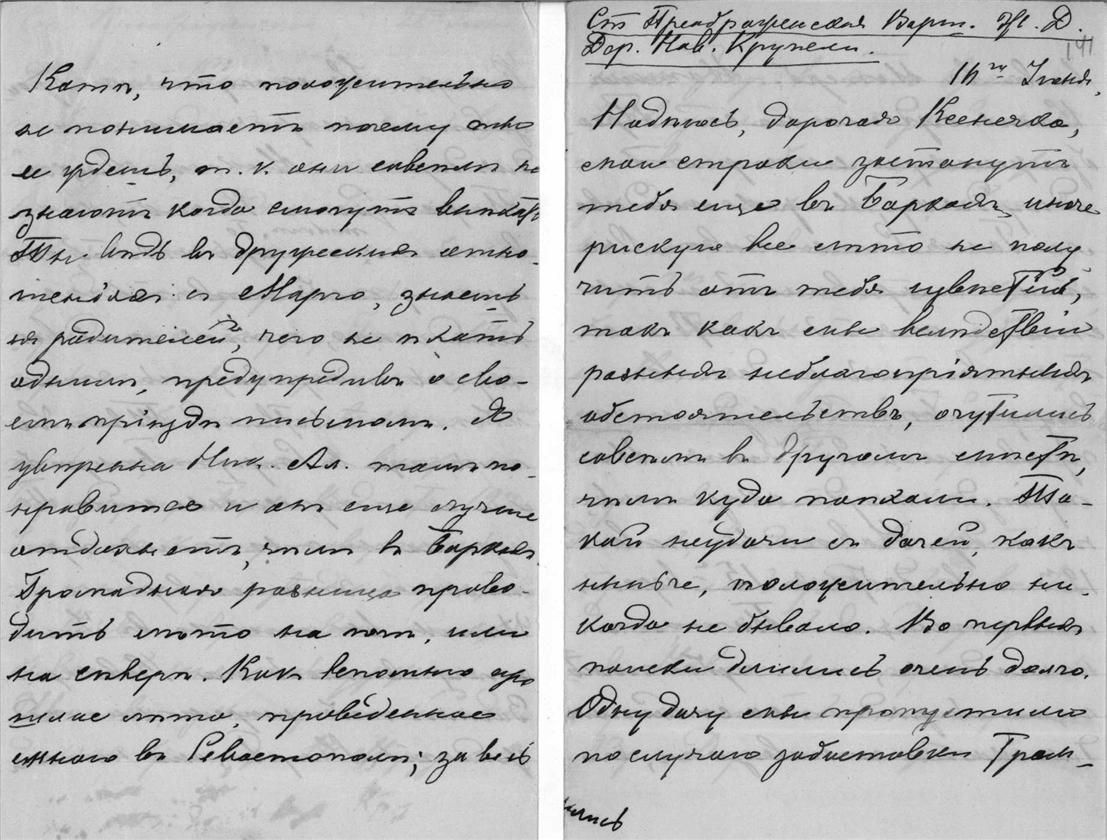 Кати, что положительно
не понимаетъ почему она
ее ждешь, т. к. они совсѣмъ не
знаютъ когда смогутъ выѣхать
Ты вѣдь въ дружескихъ отно-
шенiяхъ съ Марго, знаешь
ея родителей, чего не ѣхать
однимъ, предупредивъ о сво-
емъ прiѣздѣ письмомъ. Я
увѣренна Ник. Ал. тамъ по-
нравится и онъ еще лучше
отдохнетъ, чѣмъ въ Боркахъ.
Громадная разница прово-
дить лѣто на югѣ, или
на сѣверѣ. Какъ вспомню про
шлое лѣто, проведенное
мною въ Севастополѣ; за весь
Ст Преображенская Варш. Ж. Д.
Дер. Нов. Крупели.
141
16го Iюня,
Надѣюсь, дорогая Ксенечка,
мои строки застанутъ
тебя еще въ Боркахъ, иначе
рискую все лѣто не полу
чить отъ тебя извѣстiй,
такъ какъ мы вслѣдствiи
разныхъ неблагопрiятныхъ
обстоятельствъ, очутились
совсѣмъ въ другомъ мѣстѣ,
чѣмъ куда поѣхали. Та-
кой неудачи съ дачей, какъ
нынче, положительно ни-
когда не бывало. Во первыхъ
поиски длились очень долго.
Одну дачу мы пропустили
по случаю забастовки Трам-